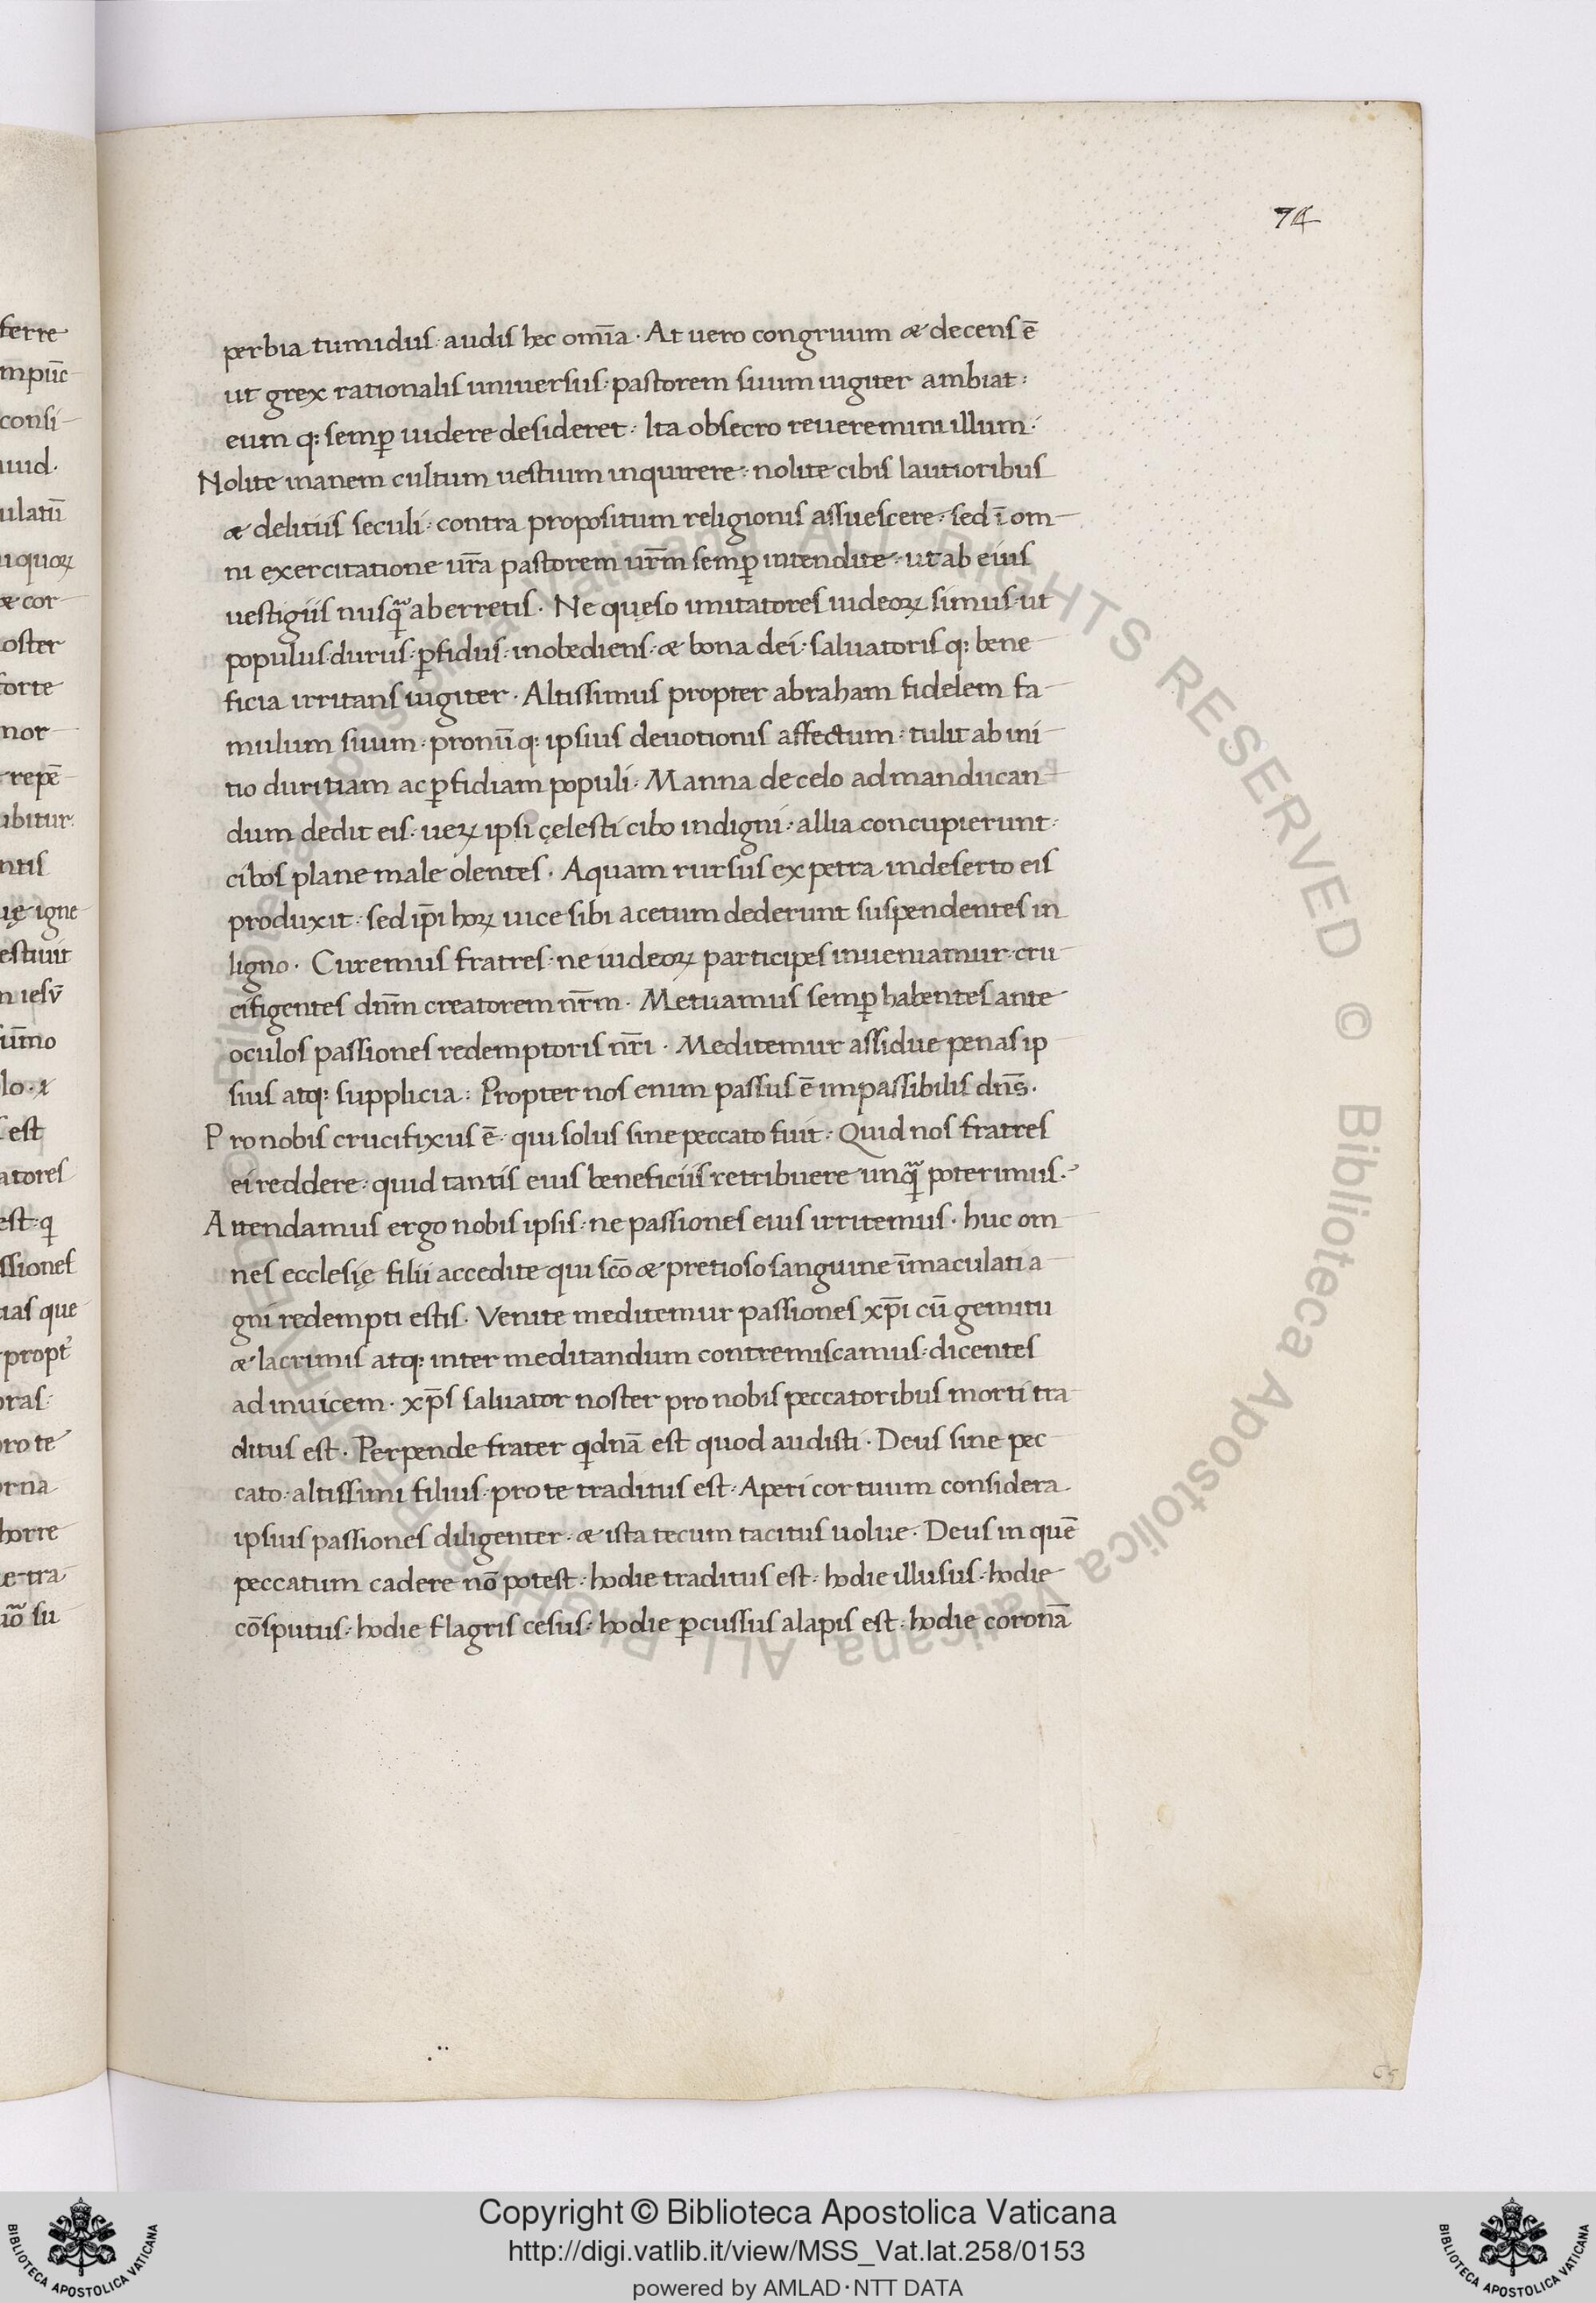 74
perbia tumidus· audis hec om̄ia · At uero congruum & decens ē
ut grex rationalis uniuersus· pastorem suum iugiter ambiat·
eum q; semꝑ uidere desideret· Ita obsecro reueremini illum·
Nolite inanem cultum uestium inquirere· nolite cibis lautioribus
& delitiis seculi· contra propositum religionis assuescere· sed ī om
ni exercitatione ur̄a pastorem ur̄m semꝑ intendite· ut ab eius
uestigiis nusq̃ aberretis · Ne quęso imitatores iudeoꝝ simus· ut
populus durus· ꝑfidus· inobediens· & bona dei· saluatoris q; bene
ficia irritans iugiter · Altissimus propter abraham fidelem fa
mulum suum· pronū q; ipsius deuotionis affectum· tulit ab ini
tio duritiam ac ꝑfidiam populi · Manna de celo ad manducan
dum dedit eis· ueꝝ ipsi cęlesti cibo indigni· allia concupierunt·
cibos plane male olentes · Aquam rursus ex petra in deserto eis
produxit· sed ip̄i hoꝝ uice sibi acetum dederunt suspendentes in
ligno · Curemus fratres· ne iudeoꝝ participes inueniamur· cru
cifigentes dn̄m creatorem nr̄m · Metuamus semꝑ habentes ante
oculos passiones redemptoris nr̄i · Meditemur assidue penas ip
sius atq; supplicia· Propter nos enim passus ē impassibilis dn̄s·
Pro nobis crucifixus ē· qui solus sine peccato fuit· Quid nos fratres
ei reddere· quid tantis eius beneficiis retribuere unq̃ poterimus·
Attendamus ergo nobis ipsis· ne passiones eius irritemus· huc om
nes ecclesię filii accedite qui sc̄o & pretioso sanguine īmaculati a
gni redempti estis· Venite meditemur passiones xp̄i cū gemitu
& lacrimis atq; inter meditandum contremiscamus· dicentes
ad inuicem · xp̄s saluator noster pro nobis peccatoribus morti tra
ditus est · Perpende frater qidnā est quod audisti · Deus sine pec
cato· altissimi filius· pro te traditus est· Aperi cor tuum considera
ipsius passiones diligenter· & ista tecum tacitus uolue· Deus in quē
peccatum cadere nō potest· hodie traditus est· hodie illusus· hodie
cōsputus· hodie flagris cesus· hodie ꝑcussus alapis est· hodie coronā
Copyright © Biblioteca Apostolica Vaticana
http://digi.vatlib.it/view/MSS_Vat.lat.258/0153
powered by AMLAD·NTT DATA